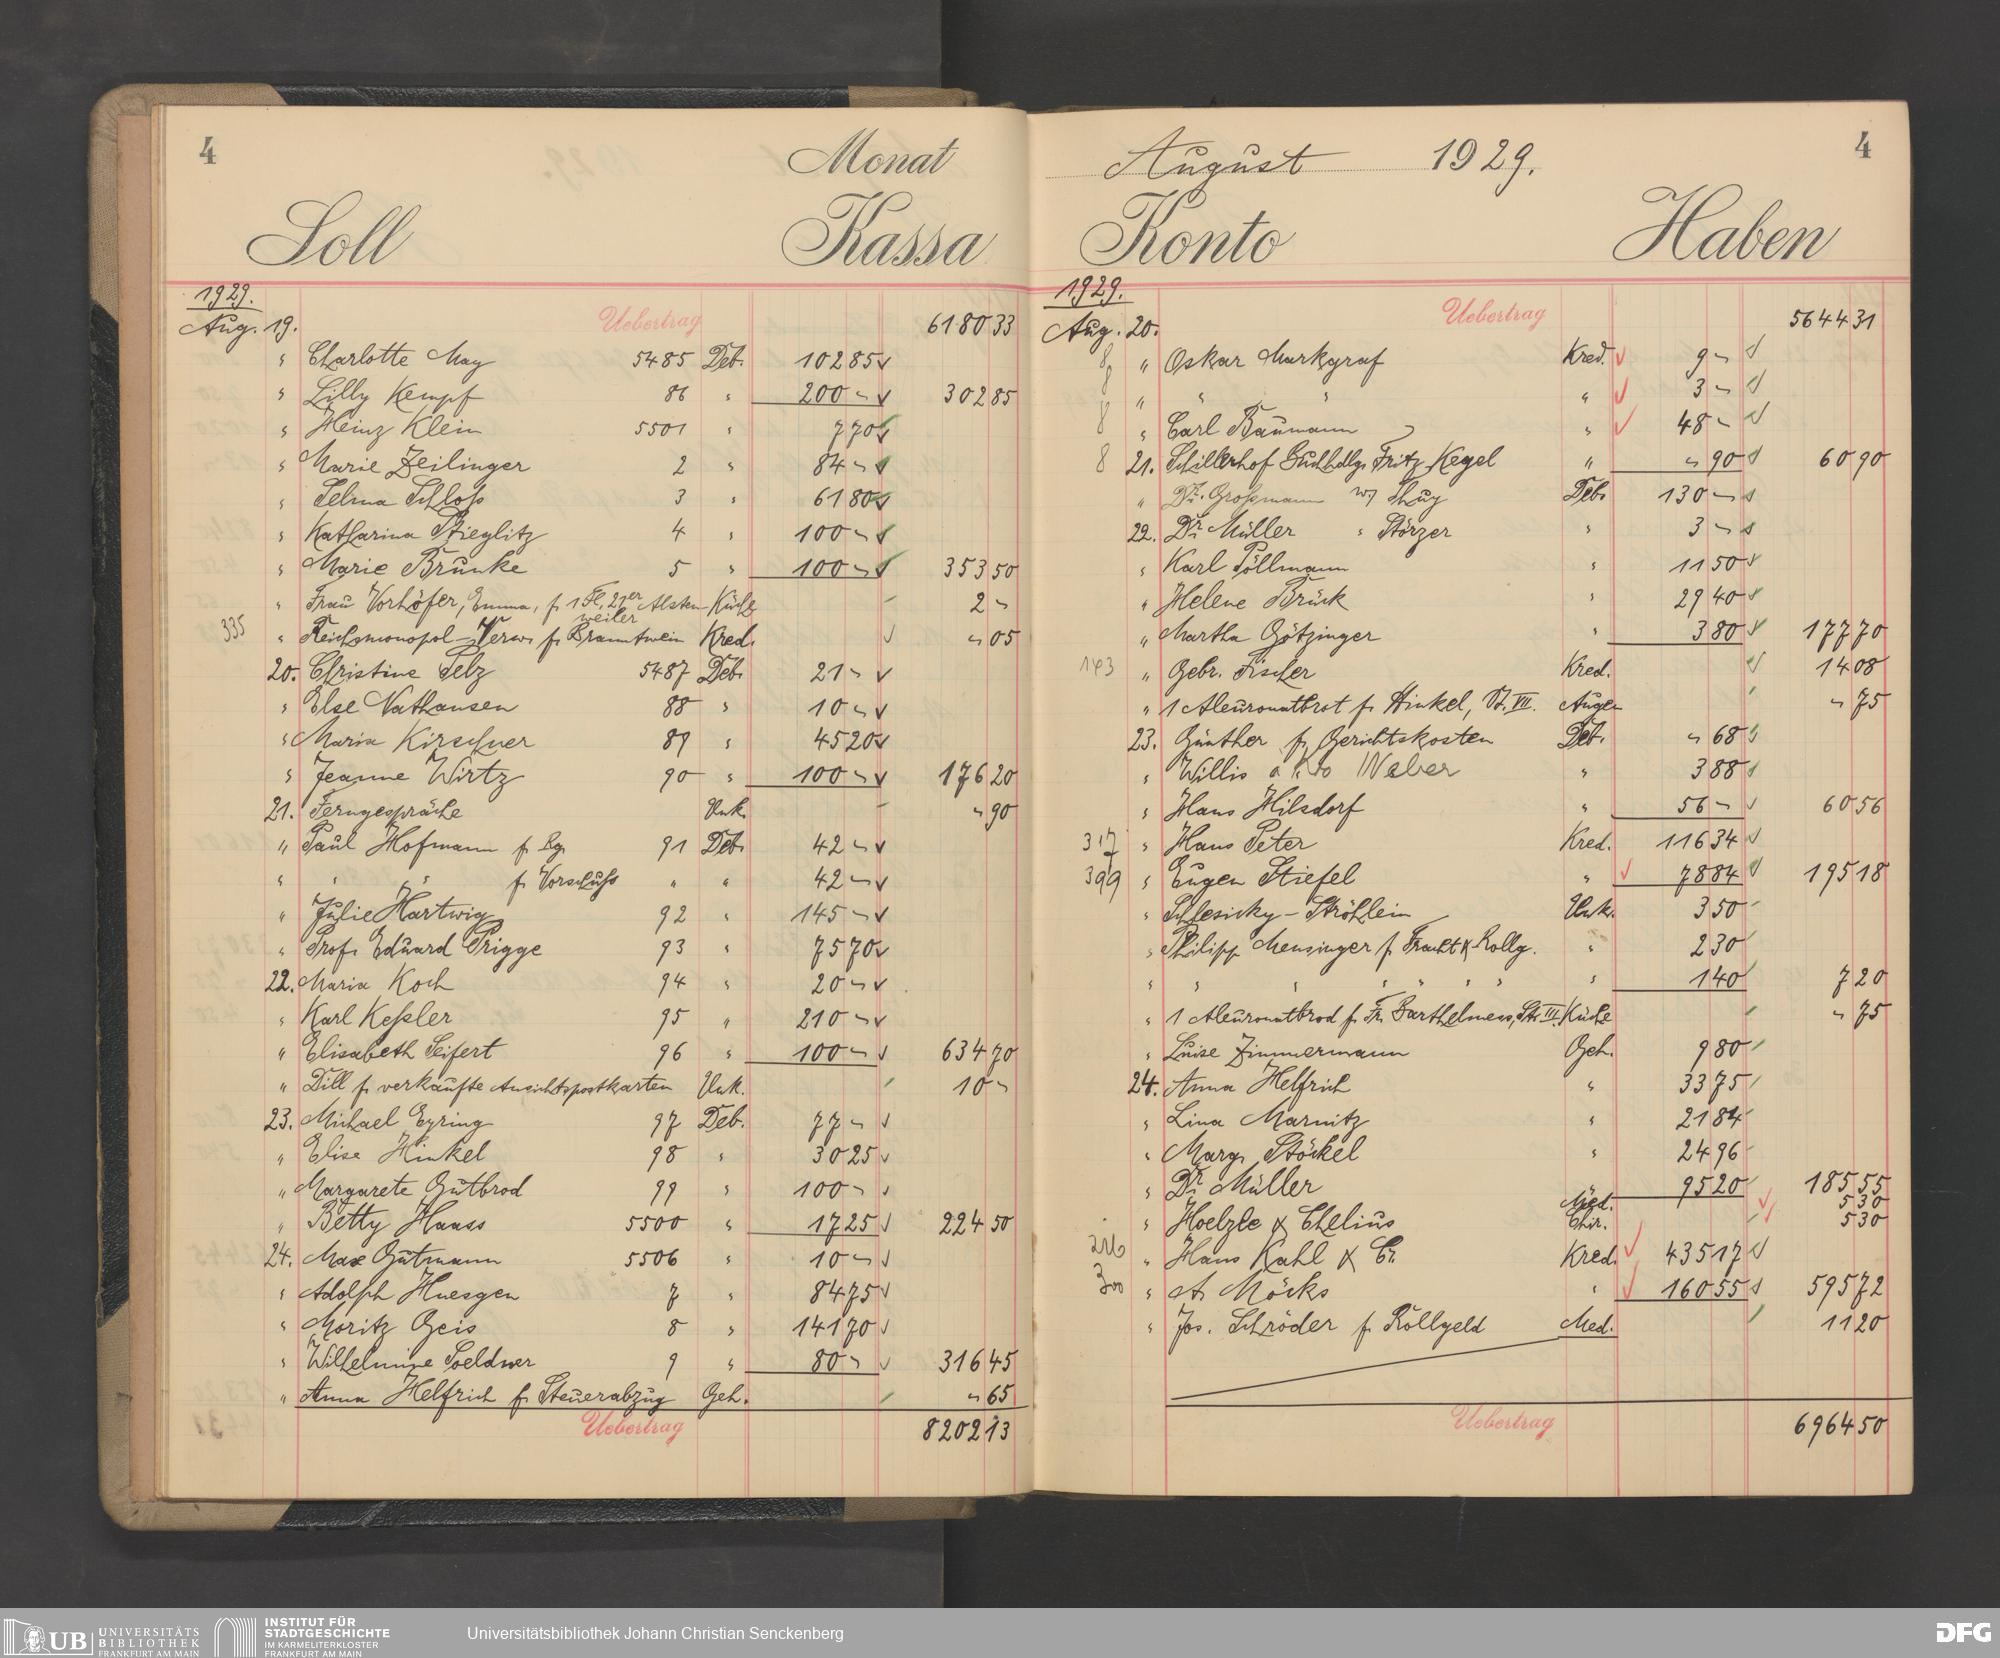 4
Monat
Soll
Kassa
1929.
Aug. 19.
Uebertrag
6180 33
" Charlotte May 5485 Deb. 102 85
" Lilly Kempf 86 " 200 – 302 85
" Heinz Klein 5501 " 7 70
" Marie Zeilinger 2 " 84 –
" Selma Schloß 3 " 61 80
" Katharina Stieglitz 4 " 100 –
" Marie Brunke 5 " 100 – 353 50
" Frau Vorhöfer, Emma, f. 1 Fl. 21er Alsterweiler Küche 2 –
335 " Reichsmonopol-Verw. f. Branntwein Kred. – 05
20. Christine Pelz 5487 Deb. 21 –
" Else Nathansen 88 " 10 –
" Maria Kirschner 89 " 45 20
" Jeanne Wirtz 90 " 100 – 176 20
21. Ferngespräche Unk. – 90
" Paul Hofmann f. Rg. 91 Deb. 42 –
" " " f. Vorschuß " " 42 –
" Julie Hartwig 92 " 145 –
" Prof. Eduard Prigge 93 " 75 70
22. Maria Koch 94 " 20 –
" Karl Keßler 95 " 210 –
" Elisabeth Seifert 96 " 100 – 634 70
" Dill f. verkaufte Ansichtspostkarten Unk. 10 –
23. Michael Eyring 97 Deb. 77 –
" Elise Hinkel 98 " 30 25
" Margarete Gutbrod 99 " 100 –
" Betty Haass 5500 " 17 25 224 50
24. Max Gutmann 5506 " 10 –
" Adolph Huesgen 7 " 84 75
" Moritz Geis 8 " 141 70
" Wilhelmine Soeldner 9 " 80 – 316 45
" Anna Helfrich f. Steuerabzug Geh. – 65
Uebertrag 8202 13
August 1929.
4
Konto
Haben
1929.
Aug. 20.
Uebertrag
5644 31
8 " Oskar Markgraf Kred. 9 –
8 " " " " 3 –
8 " Carl Baumann " 48 –
8 21. Schillerhof Buchhdlg. Fritz Kegel " – 90 60 90
" Dr. Großmann Deb. 130 –
22. Dr. Müller " Störzer " 3 –
" Karl Pöllmann " 11 50
" Helene Brück " 29 40
" Martha Götzinger " 3 80 177 70
143 " Gebr. Fischer Kred. 14 08
" 1 Aleuronatbrot f. Hinkel, St. VII. Augen – 75
23. Günther f. Gerichtskosten Deb. – 68
" Willis a Kto Weber " 3 88
" Hans Hilsdorf " 56 – 60 56
317 " Hans Peter Kred. 116 34
399 " Eugen Stiefel " 78 84 195 18
" Schlesicky-Ströhlein Unk. 3 50
" Philipp Mensinger f. Fracht & Rollg. " 2 30
" " " " " " " " 1 40 7 20
" 1 Aleuronatbrod f. Fr. Barthelmess, St. III. Küche – 75
" Luise Zimmermann Geh. 9 80
24. Anna Helfrich " 33 75
" Lina Marnitz " 21 84
" Marg. Stöckel " 24 96
" Dr. Müller " 95 20 185 55
Med. 5 30
" Hoelzle & Chelius Chir. 5 30
216 " Hans Kahl & Co. Kred. 435 17
300 " A. Möcks " 160 55 595 72
" Jos. Schröder f. Rollgeld Med. 11 20
Uebertrag 6964 50
UB UNIVERSITÄTS
BIBLIOTHEK
FRANKFURT AM MAIN
INSTITUT FÜR
STADTGESCHICHTE
IM KARMELITERKLOSTER
FRANKFURT AM MAIN
Universitätsbibliothek Johann Christian Senckenberg
DFG